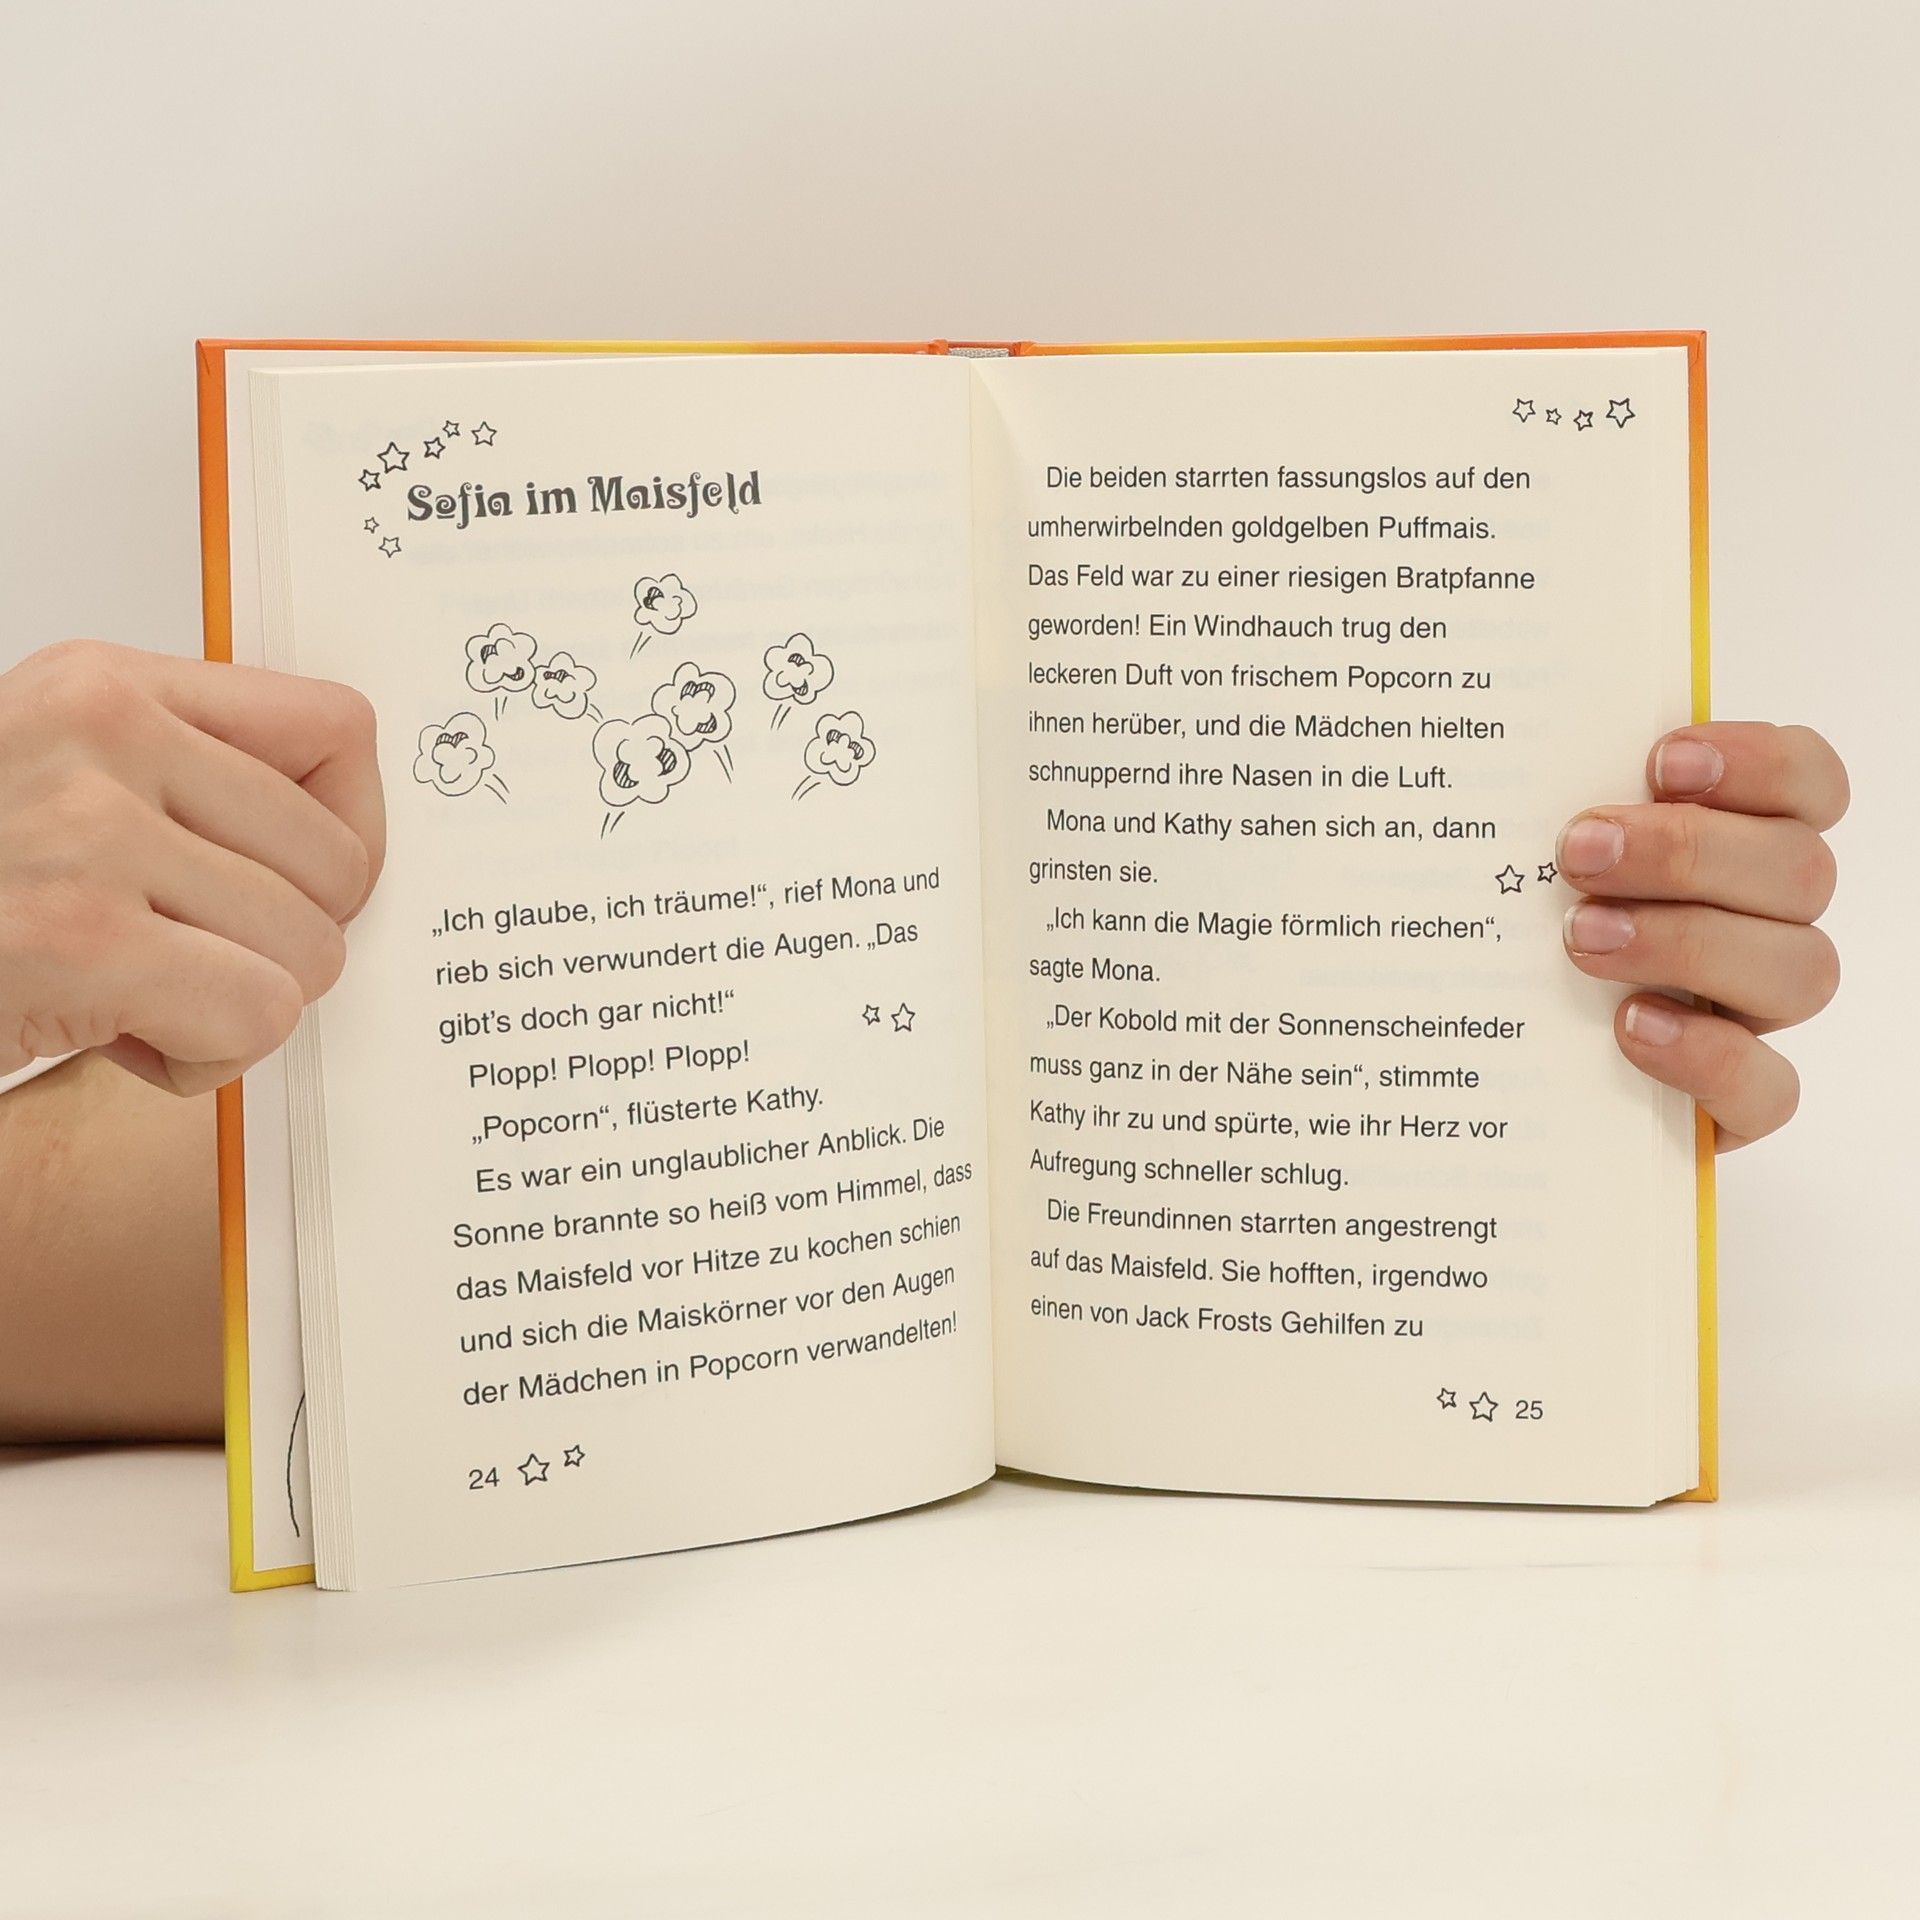 Sofia im Maisfeld
„Ich glaube, ich träume!“, rief Mona und
rieb sich verwundert die Augen. „Das
gibt’s doch gar nicht!“
Plopp! Plopp! Plopp!
„Popcorn“, flüsterte Kathy.
Es war ein unglaublicher Anblick. Die
Sonne brannte so heiß vom Himmel, dass
das Maisfeld vor Hitze zu kochen schien
und sich die Maiskörner vor den Augen
der Mädchen in Popcorn verwandelten!
24
Die beiden starrten fassungslos auf den
umherwirbelnden goldgelben Puffmais.
Das Feld war zu einer riesigen Bratpfanne
geworden! Ein Windhauch trug den
leckeren Duft von frischem Popcorn zu
ihnen herüber, und die Mädchen hielten
schnuppernd ihre Nasen in die Luft.
Mona und Kathy sahen sich an, dann
grinsten sie.
„Ich kann die Magie förmlich riechen“,
sagte Mona.
„Der Kobold mit der Sonnenscheinfeder
muss ganz in der Nähe sein“, stimmte
Kathy ihr zu und spürte, wie ihr Herz vor
Aufregung schneller schlug.
Die Freundinnen starrten angestrengt
auf das Maisfeld. Sie hofften, irgendwo
einen von Jack Frosts Gehilfen zu
25